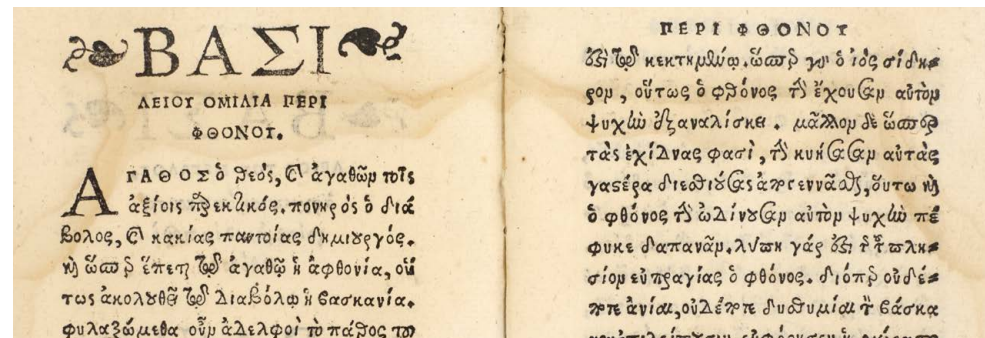 ΒΑΣΙ
ΛΕΙΟΥ ΟΜΙΛΙΑ ΠΕΡΙ
ΦΘΟΝΟΥ.
ΑΓΑΘΟΣ ὁ θεός, καὶ ἀγαθῶν τοῖς
ἀξίοις παρεκτικός. πονηρός ὁ διά
βολος, καὶ κακίας παντοίας δημιουργός.
καὶ ὥσπερ ἕπεται τῷ ἀγαθῷ ἡ ἀφθονία, οὕ
τως ἀκολουθεῖ τῷ διαβόλῳ ἡ βασκανία.
φυλαξώμεθα οὖν ἀδελφοὶ τὸ πάθος τοῦ
ΠΕΡΙ ΦΘΟΝΟΥ
ἐστὶ τῷ κεκτημένῳ. ὥσπερ γὰρ ὁ ἰὸς σίδη-
ρον, οὕτως ὁ φθόνος τὴν ἔχουσαν αὐτὸν
ψυχὴν ἐξαναλίσκει. μᾶλλον δὲ ὥσπερ
τὰς ἐχίδνας φασὶ, τὴν κυήσασαν αὐτὰς
γαστέρα διεσθιούσας ἀπογεννᾶσθαι, οὕτω καὶ
ὁ φθόνος τὴν ὠδίνουσαν αὐτὸν ψυχὴν πέ
φυκε δαπανᾶν. λύπη γάρ ἐστι τῆς τοῦ πλη-
σίον εὐπραγίας ὁ φθόνος. διόπερ οὐδέ-
ποτε ἀνίαι, οὐδέποτε δυσθυμίαι τὸν βάσκα